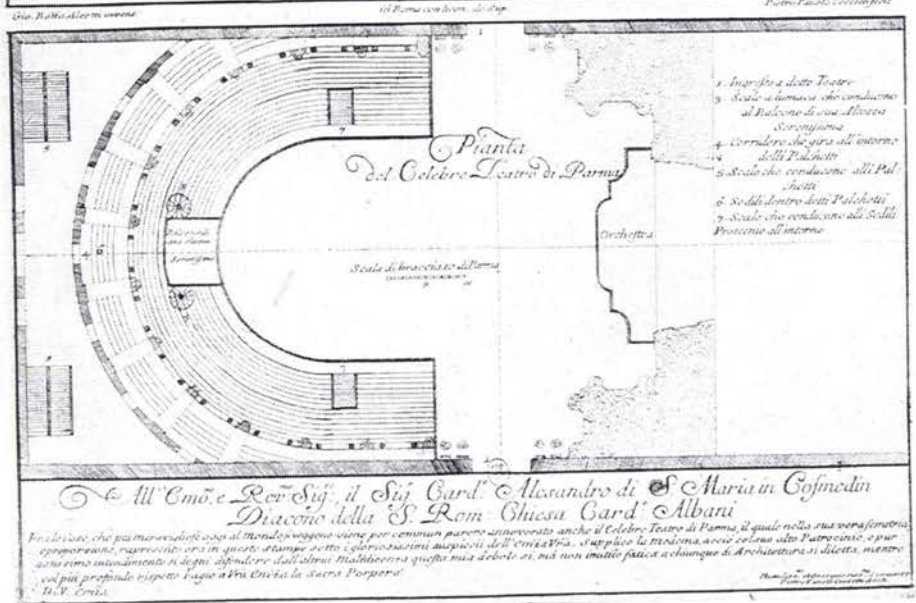 Gio. Batta
in Roma con licen. de Sup.
Pietro Paolo
1. Ingresso a detto Teatro
3. Scale a lumaca che conducono
al Balcone di sua Altezza
Serenissima
4. Corridore che gira all'intorno
delli Palchetti
5. Scale che conducono alli Pal-
chetti
6. Sedili dentro detti Palchetti
7. Scale che conducono alli Sedili
Proscenio all'intorno
Pianta
del Celebre Teatro di Parma
Orchestra
Serenissima
Scala di braccia 10 di Parma
All' Emo. e Rev. Sig. il Sig. Card. Alesandro di S. Maria in Cosmedin
Diacono della S. Rom. Chiesa Card. Albani
Fra le cose, che più maravigliose oggi al mondo si veggono viene per commun parere annoverato anche il Celebre Teatro di Parma, il quale nella sua vera simetria,
e proporzione, rappresento ora in queste stampe sotto i gloriosissimi auspicii dell'Emza Vra. Supplico la medema, acciò col suo alto Patrocinio, e pur
intendimento si degni difendere dall'altrui Maldicenza questa mia debole si, mà non inutile fatica a chiunque di Architettura si diletta, mentre
col più profondo rispetto bagio a Vra Emza la Sacra Porpora
D. V. Emza